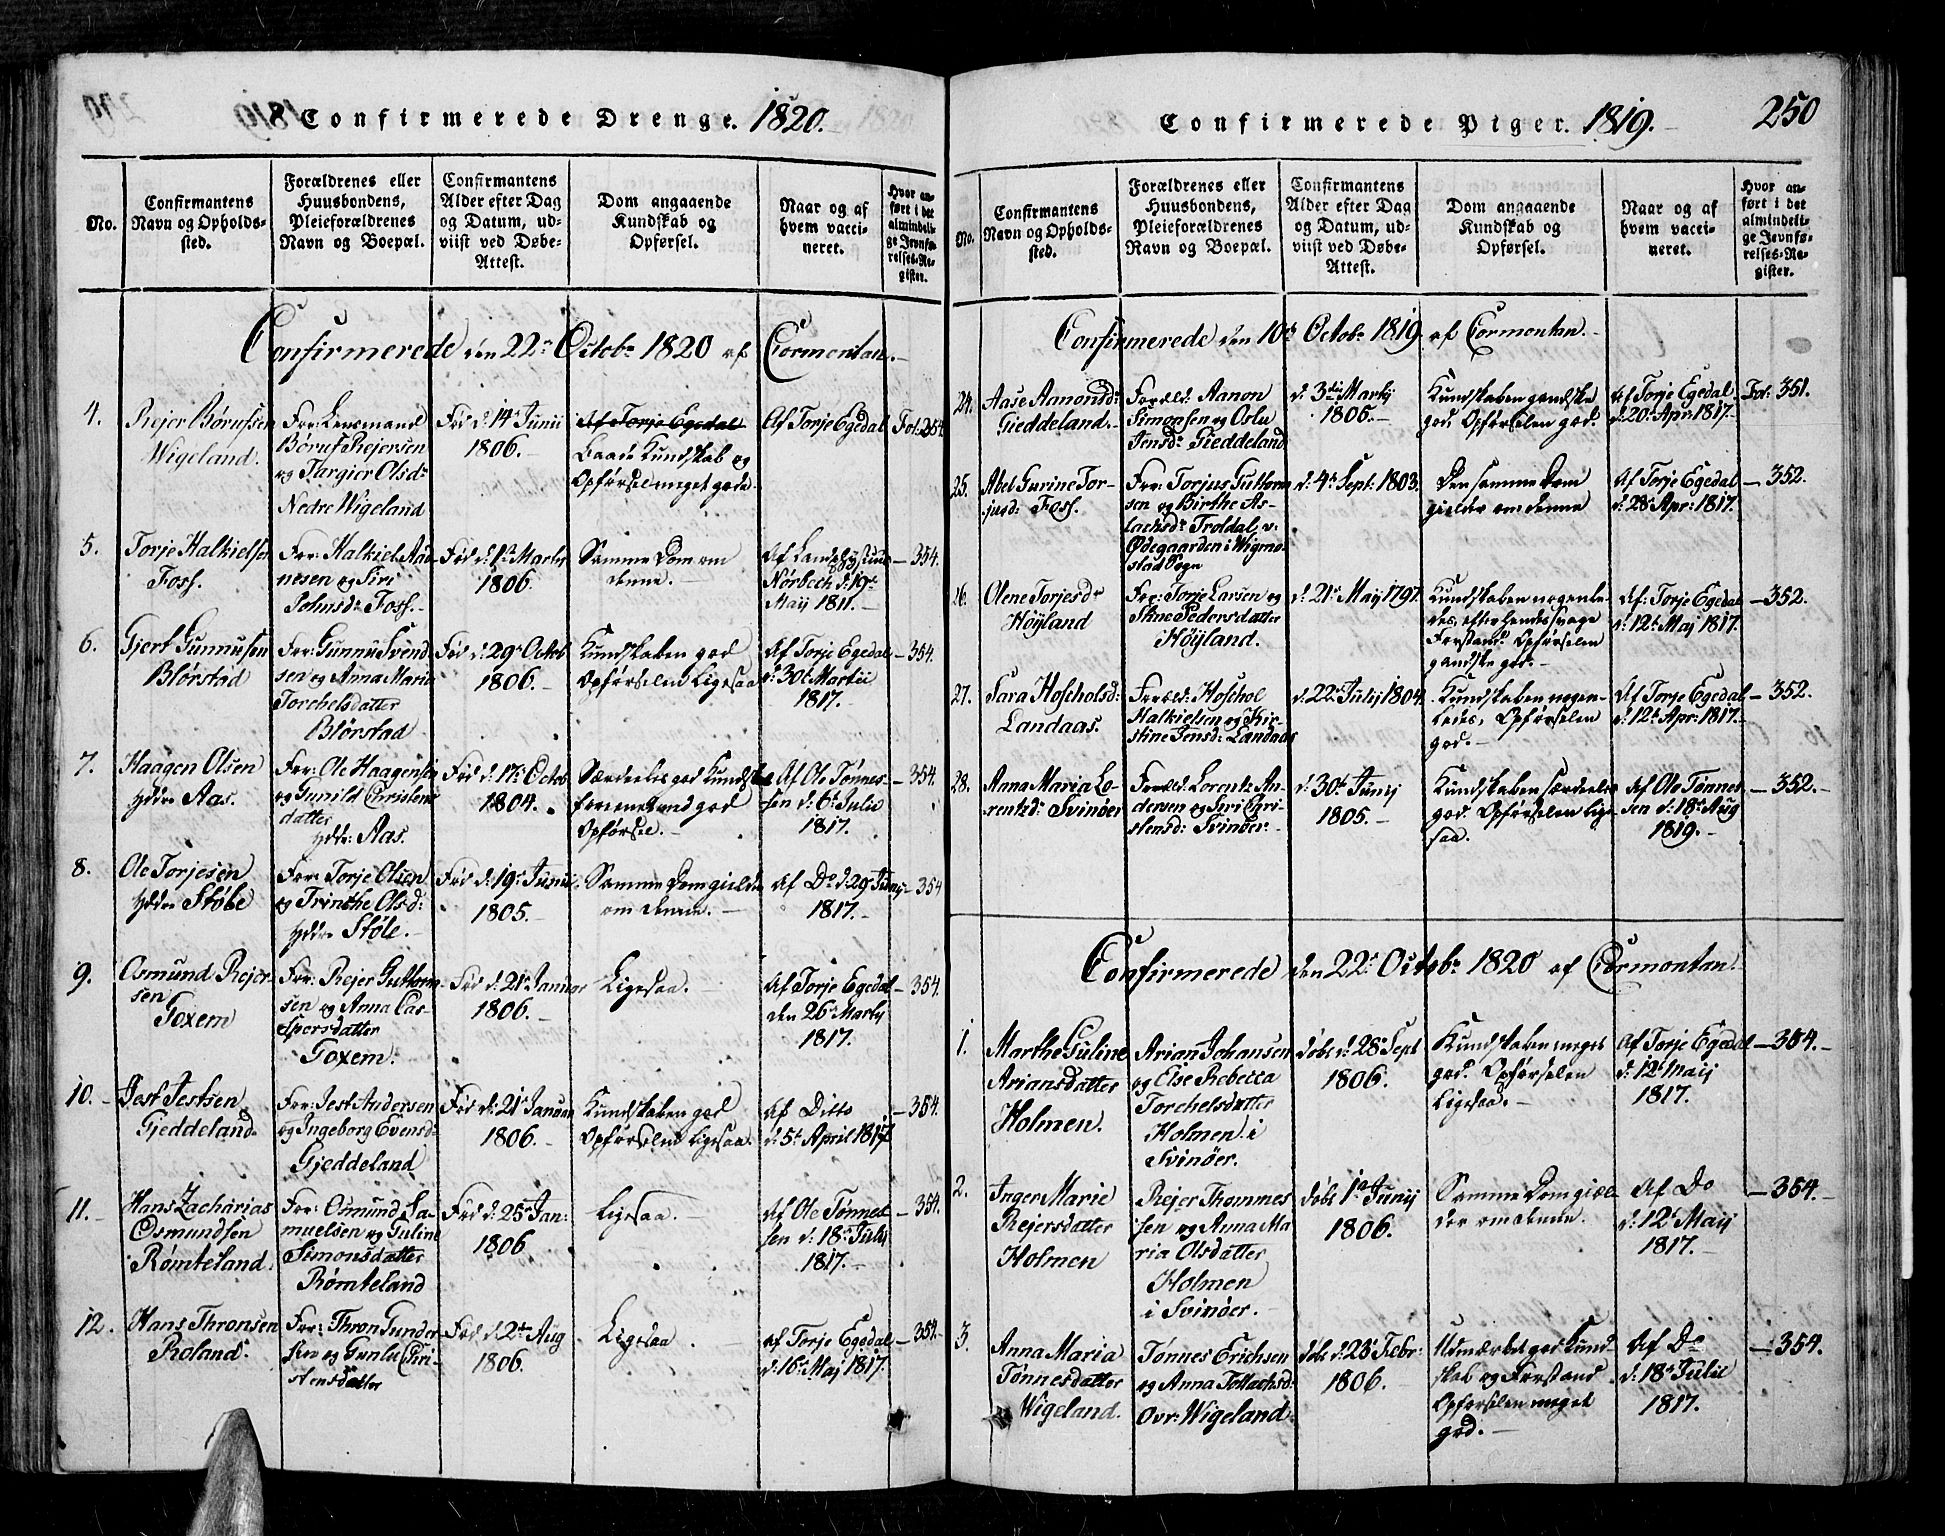 Confirmerede Drenge. 1820.
No.
Confirmantens
Navn og Opholds-
sted.
Forældrenes eller
Huusbondens,
Pleieforældrenes
Navn og Boepæl.
Confirmantens
Alder efter Dag
og Datum, ud-
viist ved Døbe-
Attest.
Dom angaaende
Kundskab og
Opførsel.
Naar og af
hvem vacci-
neret.
Hvor an-
ført i det
almindeli-
ge Jevnfø-
relses-Re-
gister.
Confirmerede den 22de Octobr 1820 af Cormontan.
4.
Rejer Børufsen
Wigeland.
For: Lensmand
Børuf Rejersen
og Targier Olsdr
Nedre Wigeland
Fød d: 14de Junii
1806.
Af Torje Egedal
Baade Kundskab og
Opførsel meget gode.
Af Torje Egedal
Fol: 354
5.
Torje Halkielsen
Foss.
For: Halkiel Aa-
nesen og Siri
Johnsdr Foss.
Fød d. 1ste Martj
1806.
Samme Dom om
denne.
Nörbech d: 19de
Maij 1811.
354.
6.
Gjert Gunnufsen
Blørstad
For: Gunnuf Svend
sen og Anna Maria
Torchelsdatter
Blørstad
Fød d: 29de Octob
1806.
Kundskaben god
Opførselen Ligesaa
Af Torje Egedal
d: 30te Martii
1817.
354.
7.
Haagen Olsen
Yddr: Aas.
For: Ole Haagensen
og Gunild Christens
datter
Yddr: Aas.
Fød d: 17de Octob
1804.
Særdeeles god Kundsk
foreenet med god
Opførsel.
Af Ole Tønnes-
sen d: 6te Julii
1817.
354.
8.
Ole Torjesen
Yddre Støle
For: Torje Olsen
og Trinche Olsd:
Yddre Støle.
Fød d: 19de Junii
1805.
Samme Dom gielder
om denne.
Af Do d: 29de Junij
1817.
354
9.
Osmund Rejer-
sen
Foxem
For: Rejer Guthorm
sen og Anna Cas-
spersdatter
Foxem.
Fød d: 21de Januar
1806.
Ligesaa.
Af Torje Egedal
den 26de Martj
1817.
354.
10.
Jest Jestsen
Gjeddeland.
For: Jest Andersen
og Ingeborg Evensd:
Gjeddeland
Fød d: 21de Januar
1806.
Kundskaben god
Opførselen ligesaa.
Af Ditto
d: 5te April 1817
354.
11.
Hans Zacharias
Osmundsen
Rømteland.
For: Osmund Sa-
muelsen og Guline
Simonsdatter
Rømteland
Fød d: 25de Jan:
1806
Ligesaa.
Af Ole Tønnes
sen d: 18de Julij
1817.
354.
12.
Hans Thronsen
Roland.
For: Thron Gunder
sen og Gunlu Chri-
stensdatter
Fød d. 2den Aug
1806.
Ligesaa
af Torje Egedal
d: 16de Maj 1817.
354.
Confirmerede Piger. 1819.
250
No.
Confirmantens
Navn og Opholds-
sted.
Forældrenes eller
Huusbondens,
Pleieforældrenes
Navn og Boepæl.
Confirmantens
Alder efter Dag
og Datum, ud-
viist ved Døbe-
Attest.
Dom angaaende
Kundskab og
Opførsel.
Naar og af
hvem vacci-
neret.
Hvor an-
ført i det
almindeli-
ge Jevnfø-
relses-Re-
gister.
Confirmerede den 10de Octobr 1819. af Cormontan.
24.
Aase Aanonds:
Gieddeland.
Foræld: Aanon
Simonsen og Oslu
Jensdr Gieddeland
d: 3die Martj
1806.
Kundskaben gandske
god, Opførselen god.
Af Torje Egedal
d: 20de Apr: 1817.
Fol: 351.
25.
Abel Gurine Tor-
jusd: Foss.
For: Torjus Guthorm
sen og Birthe As-
lachsdr Troldal v:
Ødegaarden i Wigmo-
stad Sogn
d: 4de Sept: 1803.
Den samme Dom
gielder om denne
Af Torje Egedal
d: 28de Apr: 1817.
352.
26.
Olene Torjesdr
Höyland
For: Torje Larsen og
Stine Pedersdatter
Höyland.
d: 21de Maij 1797.
Kundskaben nogenle-
des, efter hendes svage
Forstand. Opførselen
gandske god.
Af: Torje Egedal
d: 12te Maj 1817.
352.
27.
Sara Hoscholsd:
Landaas.
Foræld: Hoschol
Halkielsen og Kir-
stine Jensd: Landaas
d: 22de Julij 1804.
Kundskaben nogen-
ledes, Opførselen
god.
Af Torje Egedal
d: 12te Apr: 1817.
352.
28.
Anna Maria Lo-
rentsd: Svinøer
Foræld: Lorents An-
dersen og Siri Gri-
stensd: Svinøer.
d: 30te Junij
1805.
Kundskaben særdeeles
god. Opførselen lige-
saa.
Af Ole Tønnes
sen d: 18de Aug
1819.
352.
Confirmerede den 22de Octobr 1820 af Cormontan.
1.
Marthe Guline
Ariansdatter
Holmen.
Arian Johansen
og Else Rebecca
Torchelsdatter
Holmen i
Svinöer.
døbt d: 28de Sept
1806.
Kundskaben meget
god. Opførselen
Ligesaa.
Af Torje Egedal
d: 12te Maij
1817.
354.
2.
Inger Marie
Rejersdatter
Holmen
Rejer Thommes
sen og Anna Ma
ria Olsdatter
Holmen
i Svinöer.
døbt 1ste Junij
1806.
Samme Dom giel-
der om denne.
Af Do
d: 12te Maij
1817.
354.
3.
Anna Maria
Tønnesdatter
Wigeland.
Tønnes Erichsen
og Anna Tollachsd:
Ovr: Wigeland.
døbt d: 23de Febr:
1806.
Udmærket god Kund-
skab og Forstand
Opførselen meget
god.
Af Do
d: 18de Julii
1817.
354.